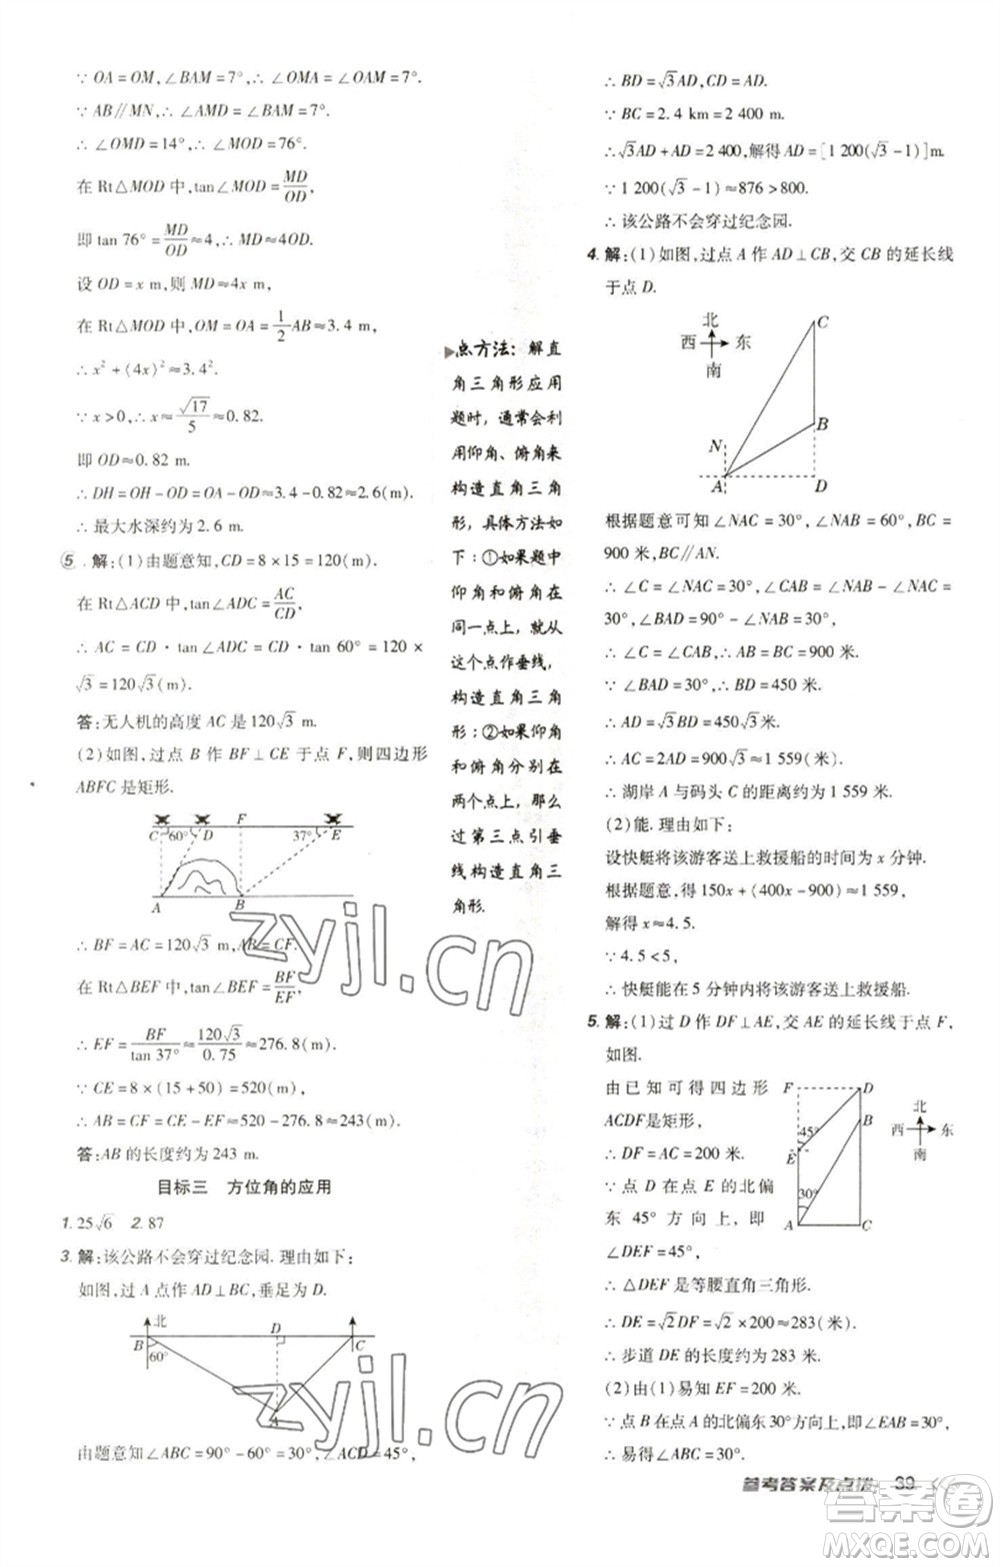 ∵ OA = OM, ∠BAM = 7°, ∴ ∠OMA = ∠OAM = 7°.
∵ AB∥MN, ∴ ∠AMD = ∠BAM = 7°.
∴ ∠OMD = 14°, ∴ ∠MOD = 76°.
在 Rt△MOD 中, tan∠MOD = MD/OD,
即 tan 76° = MD/OD ≈ 4, ∴ MD ≈ 4OD.
设 OD = x m, 则 MD ≈ 4x m.
在 Rt△MOD 中, OM = OA = 1/2 AB ≈ 3.4 m,
∴ x² + (4x)² ≈ 3.4².
∵ x > 0, ∴ x ≈ √17/5 ≈ 0.82.
即 OD ≈ 0.82 m.
∴ DH = OH - OD = OA - OD ≈ 3.4 - 0.82 ≈ 2.6(m).
∴ 最大水深约为 2.6 m.
5. 解:(1)由题意知, CD = 8 × 15 = 120(m).
在 Rt△ACD 中, tan∠ADC = AC/CD,
∴ AC = CD · tan∠ADC = CD · tan 60° = 120 ×
√3 = 120√3(m).
答:无人机的高度 AC 是 120√3 m.
(2)如图,过点 B 作 BF⊥CE 于点 F,则四边形
ABFC 是矩形.
C 60° D F 37° E
A B
∴ BF = AC = 120√3 m, AB = CF.
在 Rt△BEF 中, tan∠BEF = BF/EF,
∴ EF = BF/tan 37° ≈ 120√3/0.75 ≈ 276.8(m).
∵ CE = 8 × (15 + 50) = 520(m),
∴ AB = CF = CE - EF ≈ 520 - 276.8 ≈ 243(m).
答:AB 的长度约为 243 m.
目标三 方位角的应用
1. 25√6 2. 87
3. 解:该公路不会穿过纪念园.理由如下:
如图,过 A 点作 AD⊥BC,垂足为 D.
北
B D C
60°
A
由题意知∠ABC = 90° - 60° = 30°, ∠ACD = 45°,
点方法:解直
角三角形应用
题时,通常会利
用仰角、俯角来
构造直角三角
形,具体方法如
下:①如果题中
仰角和俯角在
同一点上,就从
这个点作垂线,
构造直角三角
形;②如果仰角
和俯角分别在
两个点上,那么
过第三点引垂
线构造直角三
角形.
∴ BD = √3AD, CD = AD.
∵ BC = 2.4 km = 2 400 m.
∴ √3AD + AD = 2 400,解得 AD = [1 200(√3 - 1)]m.
∵ 1 200(√3 - 1) ≈ 876 > 800.
∴ 该公路不会穿过纪念园.
4. 解:(1)如图,过点 A 作 AD⊥CB,交 CB 的延长线
于点 D.
北 C
西 东
南
N B
A D
根据题意可知 ∠NAC = 30°, ∠NAB = 60°, BC =
900 米, BC∥AN.
∴ ∠C = ∠NAC = 30°, ∠CAB = ∠NAB - ∠NAC =
30°, ∠BAD = 90° - ∠NAB = 30°.
∴ ∠C = ∠CAB, ∴ AB = BC = 900 米.
∵ ∠BAD = 30°, ∴ BD = 450 米.
∴ AD = √3BD = 450√3米.
∴ AC = 2AD = 900√3 ≈ 1 559(米).
∴ 湖岸 A 与码头 C 的距离约为 1 559 米.
(2)能.理由如下:
设快艇将该游客送上救援船的时间为 x 分钟.
根据题意,得 150x + (400x - 900) ≈ 1 559,
解得 x ≈ 4.5.
∵ 4.5 < 5,
∴ 快艇能在 5 分钟内将该游客送上救援船.
5. 解:(1)过 D 作 DF⊥AE,交 AE 的延长线于点 F,
如图.
由已知可得四边形
ACDF是矩形.
∴ DF = AC = 200 米.
∵ 点 D 在点 E 的北偏
东 45° 方向上,即
∠DEF = 45°,
F D
B
45°
E
30°
A C
北
西 东
南
∴ △DEF 是等腰直角三角形.
∴ DE = √2DF = √2 × 200 ≈ 283(米).
∴ 步道 DE 的长度约为 283 米.
(2)由(1)易知 EF = 200 米.
∵ 点 B 在点 A 的北偏东30°方向上,即∠EAB = 30°,
∴ 易得∠ABC = 30°.
参考答案及点拨 39
zyjl.cn
zyjl.cn
答案圈
MXQE.COM